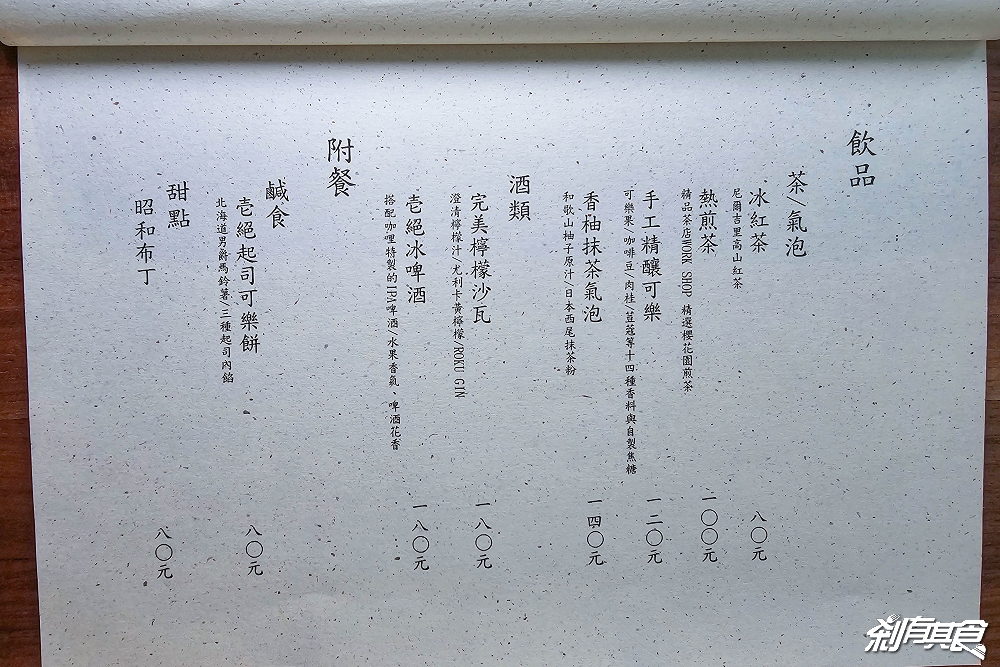 飲品
茶/氣泡
冰紅茶
八〇元
尼爾吉里高山紅茶
熱煎茶
一〇〇元
精品茶店WORK SHOP 精選櫻花園煎茶
手工精釀可樂
一二〇元
可樂果/咖啡豆/肉桂/荳蔻等十四種香料與自製焦糖
香柚抹茶氣泡
一四〇元
和歌山柚子原汁/日本西尾抹茶粉
酒類
完美檸檬沙瓦
一八〇元
澄清檸檬汁/尤利卡黃檸檬/ROKU GIN
壱絕冰啤酒
一八〇元
搭配咖哩特製的IPA啤酒/水果香氣、啤酒花香
附餐
鹹食
壱絕起司可樂餅
八〇元
北海道男爵馬鈴薯/三種起司內餡
甜點
昭和布丁
八〇元
剎有其食